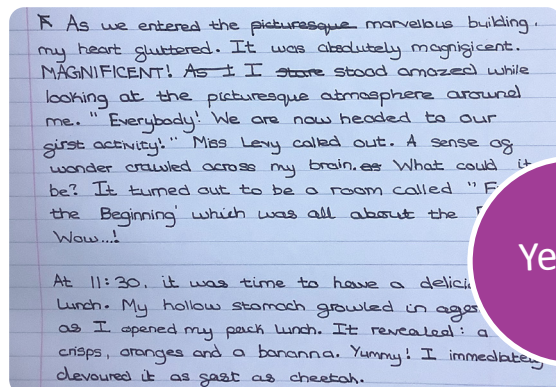 As we entered the picturesque marvelous building,
my heart gluttered. It was absolutely magnigicent.
MAGNIFICENT! As I I stare stood amazed while
looking at the picturesque atmosphere around
me. "Everybody! We are now headed to our
girst activity!" Miss Levy called out. A sense og
wonder crawled across my brain. What could it
be? It turned out to be a room called "
the Beginning' which was all about the
Wow...!
At 11:30, it was time to have a
lunch. My hollow stomach growled in
as I opened my pack lunch. It revealed: a
crisps, oranges and a bananna. Yummy! I immediately
devoured it as gast as cheetah.
Ye